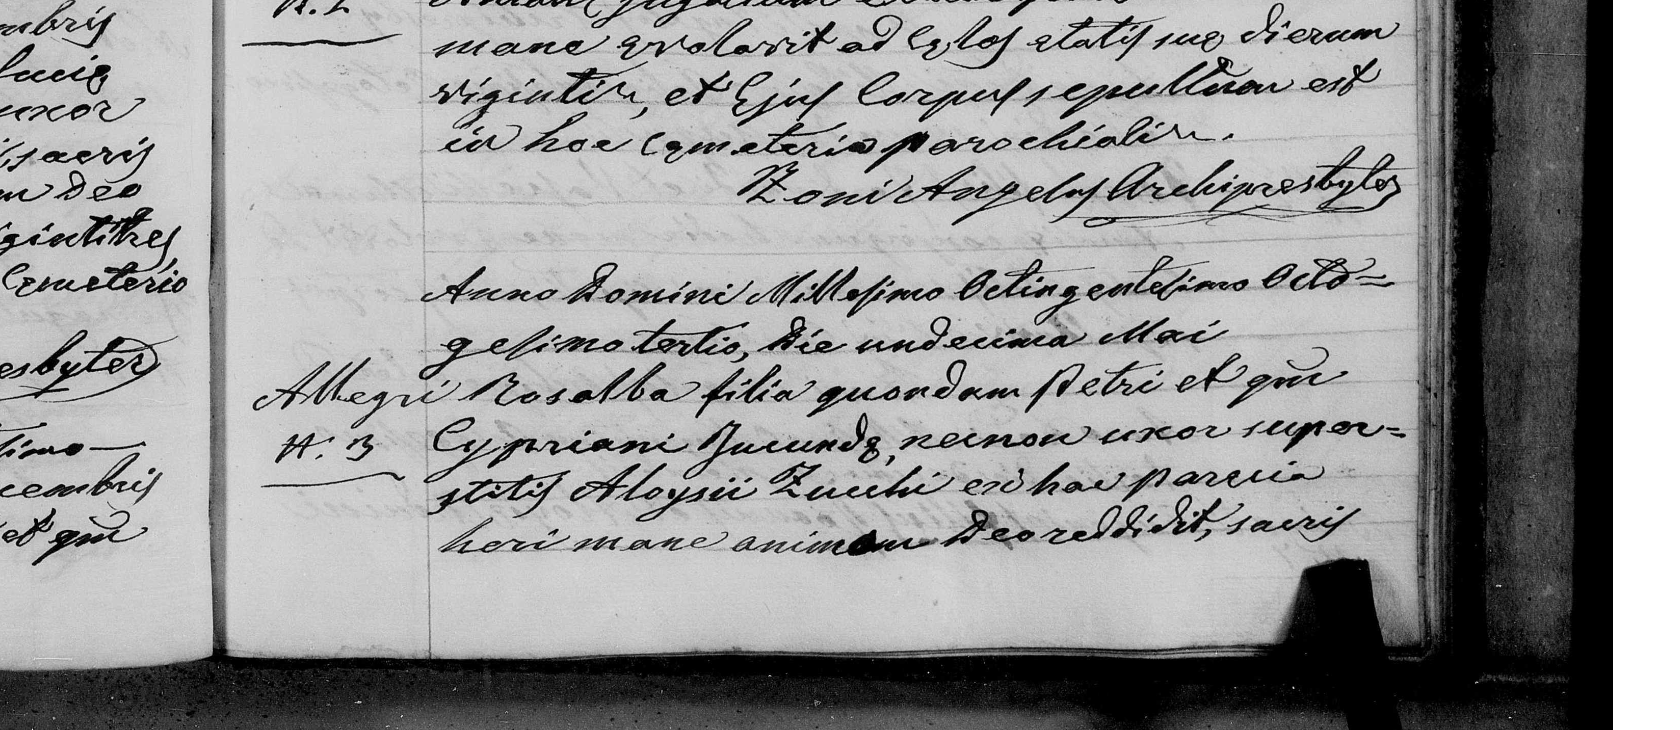 mbris
Lucię
uxor
sacris
m Deo
igintitres
Cęmeterio
esbyter
simo
cembris
et qm̄
N. 2
mane evolavit ad Cęlos ętatis suę dierum
viginti, et Ejus Corpus sepultum est
in hoc Cęmeterio parochiali.
Zoni Angelus Archipresbyter
Anno Domini Millesimo Octingentesimo Octo=
gesimo tertio, Die undecima Mai
Allegri Rosalba filia quondam Petri et qm̄
N. 3 Cypriani Jucundę, necnon uxor super=
stitis Aloysii Zucchi ex hac Parecia
heri mane animam Deo reddidit, sacris